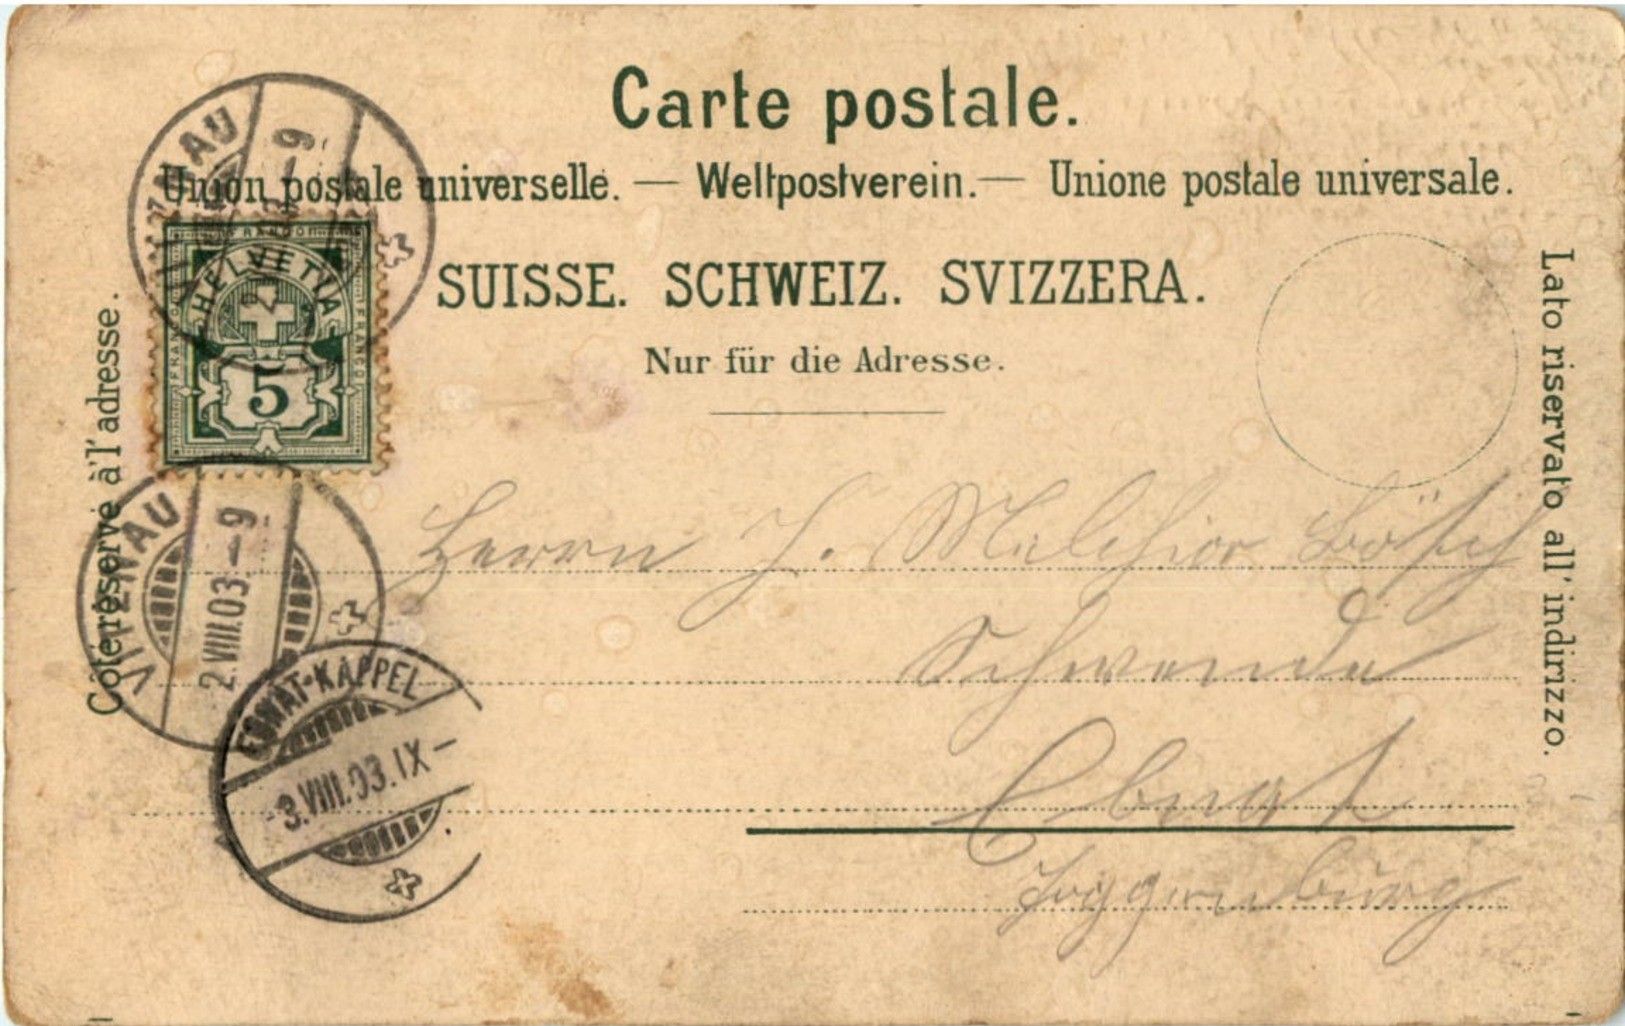 Carte postale.
Union postale universelle. — Weltpostverein. — Unione postale universale.
SUISSE. SCHWEIZ. SVIZZERA.
Nur für die Adresse.
Côté réservé à l'adresse.
Lato riservato all' indirizzo.
FRANCO
FRANCO
FRANCO
HELVETIA
5
VITZNAU
2.VIII.03.–9
VITZNAU
2.VIII.03.–9
EBNAT-KAPPEL
-3.VIII.03.IX–
Herrn J. Melchior Bösch
Schwende
Ebnat
Toggenburg